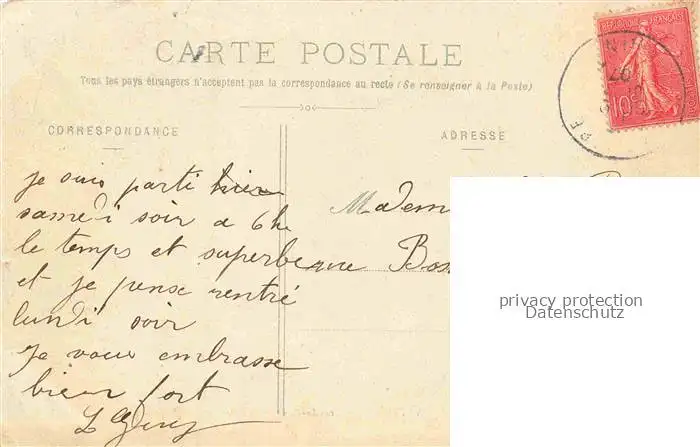 CARTE POSTALE
Tous les pays étrangers n'acceptent pas la correspondance au recto (Se renseigner à la Poste)
CORRESPONDANCE
ADRESSE
REPUBLIQUE FRANÇAISE
10c
je suis parti hier
samedi soir a 6h
le temps et superbe
et je pense rentré
lundi soir
Je vous embrasse
bien fort
Madem
rue Bos
privacy protection
Datenschutz